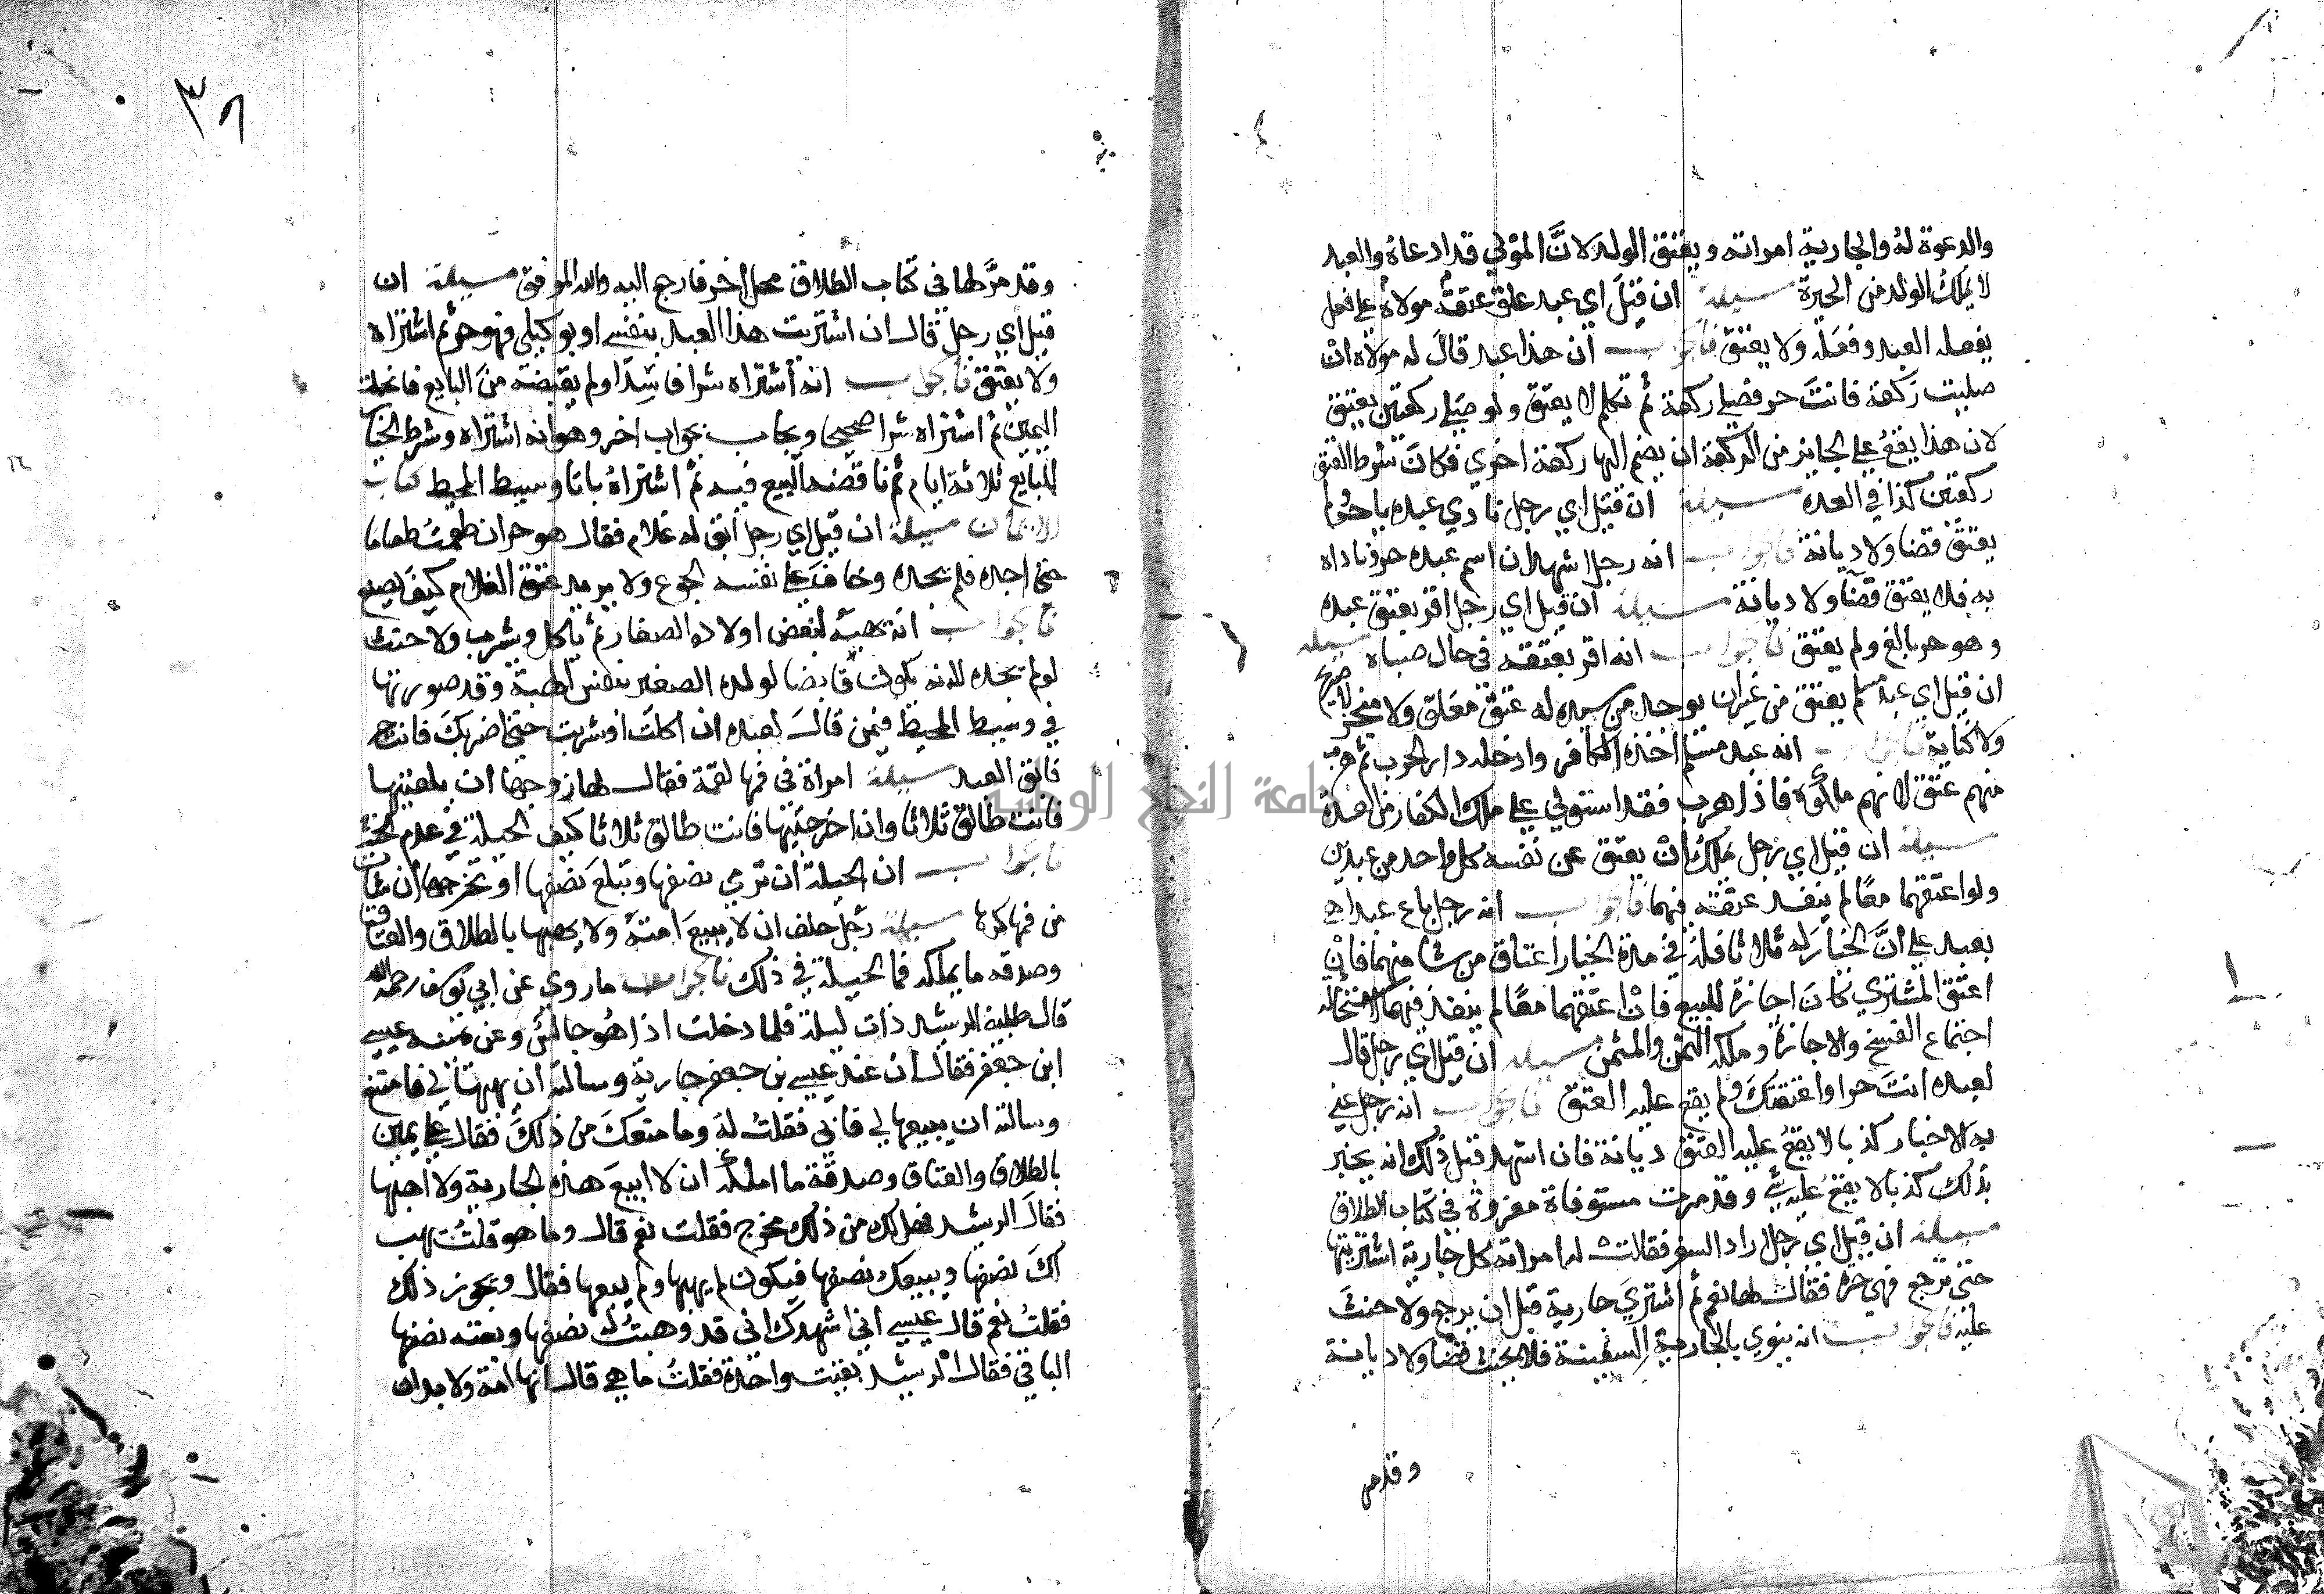 والدعوة له والجارية امراته ويعتق الولد لان المولي قد ادعاه والعبد
لا يملك الولد من الحرة مسيلة ان قيل اي عبد علق عتقه مولاه علي فعل
يفعله العبد وفعله ولا يعتق فالجواب ان هذا عبد قال له مولاه ان
صليت ركعة فانت حر فصلي ركعة ثم تكلم لا يعتق ولو صلي ركعتين يعتق
لان هذا يقع علي الجايز من الركعة ان يضم اليها ركعة اخري فكان شرط العتق
ركعتين كذا في العده مسيلة ان قيل اي رجل نادي عبده يا حر ولم
يعتق قضا ولا ديانة فالجواب انه رجل اشهد ان اسم عبده حر فناداه
به فلا يعتق قضا ولا ديانة مسيلة ان قيل اي رجل اقر بعتق عبده
وهو حر بالغ ولم يعتق فالجواب انه اقر بعتقه في حال صباه مسيله
ان قيل اي عبد مسلم يعتق من غير ان يوجد من سيده له عتق معلق ولا منجز لا صريح
ولا كناية فالجواب انه عبد مسلم اخذه الكافر وادخله دار الحرب ثم هرب
منهم عتق لانهم ملكوه فاذا هرب فقد استولي علي ملك الكفار من العدة
مسيلة ان قيل اي رجل يملك ان يعتق عن نفسه كل واحد من عبدين
ولو اعتقهما معا لم ينفذ عتقه فيهما فالجواب انه رجل باع عبدا
بعبد علي ان الخيار له ثلاثا فله في مدة الخيار اعتاق من شا منهما فان
اعتق المشتري كان اجازة للبيع فان اعتقهما معا لم ينفذ فيهما لاستحالة
اجتماع الفسخ والاجازة وملكه الثمن والمثمن مسيله ان قيل اي رجل قال
لعبده انت حر او اعتقتك ولم يقع عليه العتق فالجواب انه رجل عني
به الاخبار كذبا لا يقع عليه العتق ديانة فان اشهد قبل ذلك انه يخبر
بذلك كذبا لا يقع عليه شي وقد مرت مستوفاة معزوة في كتاب الطلاق
مسيلة ان قيل اي رجل اراد السفر فقالت له امراته كل جارية اشتريتها
حتي ترجع فهي حرة فقال لها نعم ثم اشتري جارية قبل ان يرجع ولا حنث
عليه فالجواب انه ينوي بالجارية السفينة فلا يحنث قضا ولا ديانة
وقد مر
٣٨
وقد مر لها في كتاب الطلاق محل اخر فارجع اليه والله الموفق مسيلة ان
قيل اي رجل قال ان اشتريت هذا العبد بنفسي او بوكيلي فهو حر ثم اشتراه
ولا يعتق فالجواب انه اشتراه شرا فاسدا ولم يقبضه من البايع فانحلت
اليمين ثم اشتراه شرا صحيحا ويجاب بجواب اخر وهو انه اشتراه وشرط الخيار
للبايع ثلاثة ايام ثم ناقضه البيع فيه ثم اشتراه باتا وسيط المحيط كتاب
الايمان مسيلة ان قيل اي رجل ابق له غلام فقال هو حر ان طعمت طعاما
حتي اجده فلم يجده وخاف علي نفسه الجوع ولا يريد عتق الغلام كيف يصنع
فالجواب انه يهبه لبعض اولاده الصغار ثم ياكل ويشرب ولا حنث
لو لم يجده لانه يكون قابضا لولده الصغير بنفس الهبة وقد صورتها
في وسيط المحيط فيمن قال لعبده ان اكلت او شربت حتي اضربك فانت حر
فابق العبد مسيلة امراة في فمها لقمة فقال لها زوجها ان بلعتيها
فانت طالق ثلاثا وان اخرجتيها فانت طالق ثلاثا كيف الحيلة في عدم الحنث
فالجواب ان الحيلة ان ترمي نصفها وتبلع نصفها او يخرجها انسان
من فمها كرها مسيلة رجل حلف ان لا يبيع امته ولا يهبها بالطلاق والعتاق
وصدقه ما يملكه فما الحيلة في ذلك فالجواب ما روي عن ابي يوسف رحمه الله
قال طلبني الرشيد ذات ليلة فلما دخلت اذا هو جالس وعن يمينه عيسي
ابن جعفر فقال ان عند عيسي بن جعفر جارية وسالته ان يهبها لي فامتنع
وسالته ان يبيعها لي فابي فقلت له وما منعك من ذلك فقال علي يمين
بالطلاق والعتاق وصدقة ما املكه ان لا ابيع هذه الجارية ولا اهبها
فقال الرشيد فهل لك من ذلك مخرج فقلت نعم قال وما هو قلت يهب
لك نصفها ويبيعك نصفها فيكون لم يهبها ولم يبعها فقال ويجوز ذلك
فقلت نعم قال عيسي اني اشهدك اني قد وهبت له نصفها وبعته نصفها
الباقي فقال الرشيد بقيت واحدة فقلت ما هي قال انها امة ولا بد ان
جامعة النجاح الوطنية